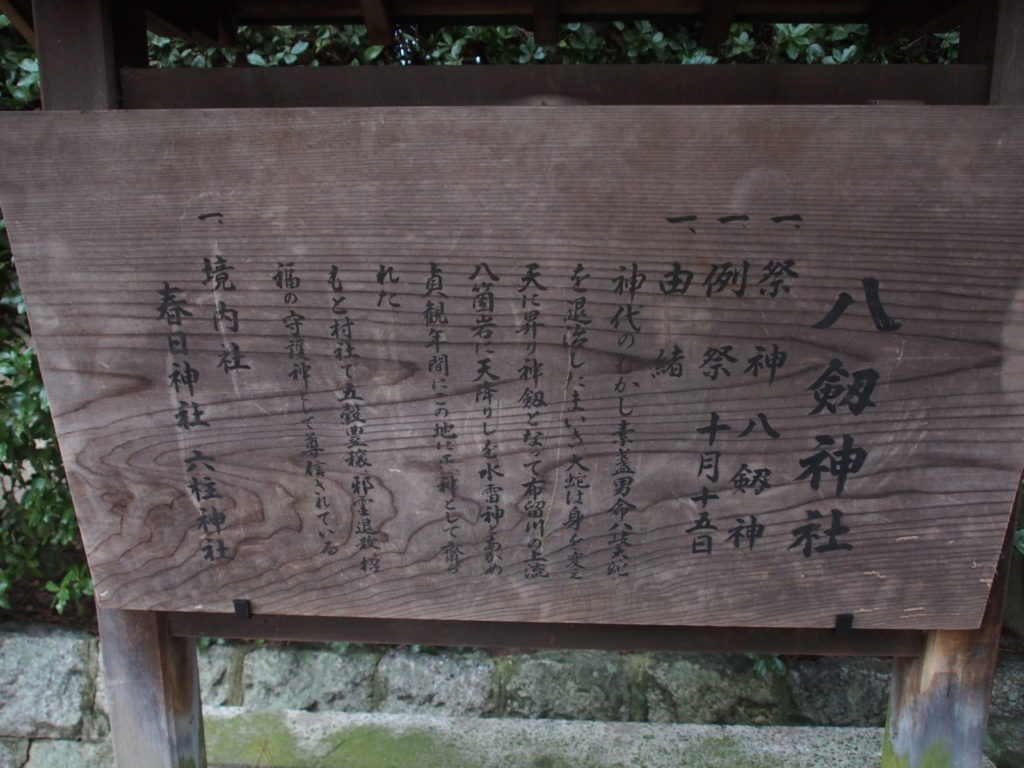 八剱神社
一、祭神 八剱神
一、例祭 十月十五日
一、由緒
神代のむかし素盞男命八岐大蛇
を退治したまいき大蛇は身を変え
天に昇り神剱となって布留川の上流
八箇岩に天降りしを水雷神とあがめ
貞観年間にこの地に神として齋
れた
もと村社で五穀豊穣邪霊退散招
福の守護神として尊信されている
一、境内社
春日神社 六柱神社